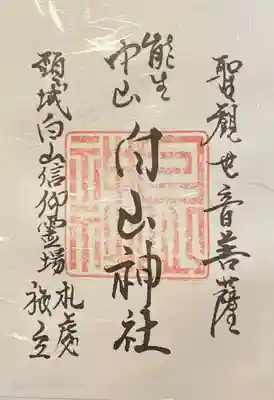 聖観世音菩薩
能生
中山
白山神社
頸城白山信仰霊場
札處